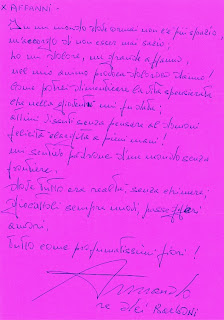 X AFFANNI -
In un mondo dove ormai non c'è più spazio,
m'accorgo di non esser mai sazio!
Ho un dolore, un grande affanno,
nel mio animo produce dolcissimo danno!
Come potrei dimenticare la vita spensierata
che nella gioventù mi fu data;
attimi vissuti senza pensare al domani
felicità elargita a piene mani!
un sentirsi padrone d'un mondo senza
frontiere,
dove tutto era realtà, senza chimere;
Giocattoli sempre nuovi, passeggeri
amori,
tutto come profumatissimi fiori!
Armando
re dei Barboni